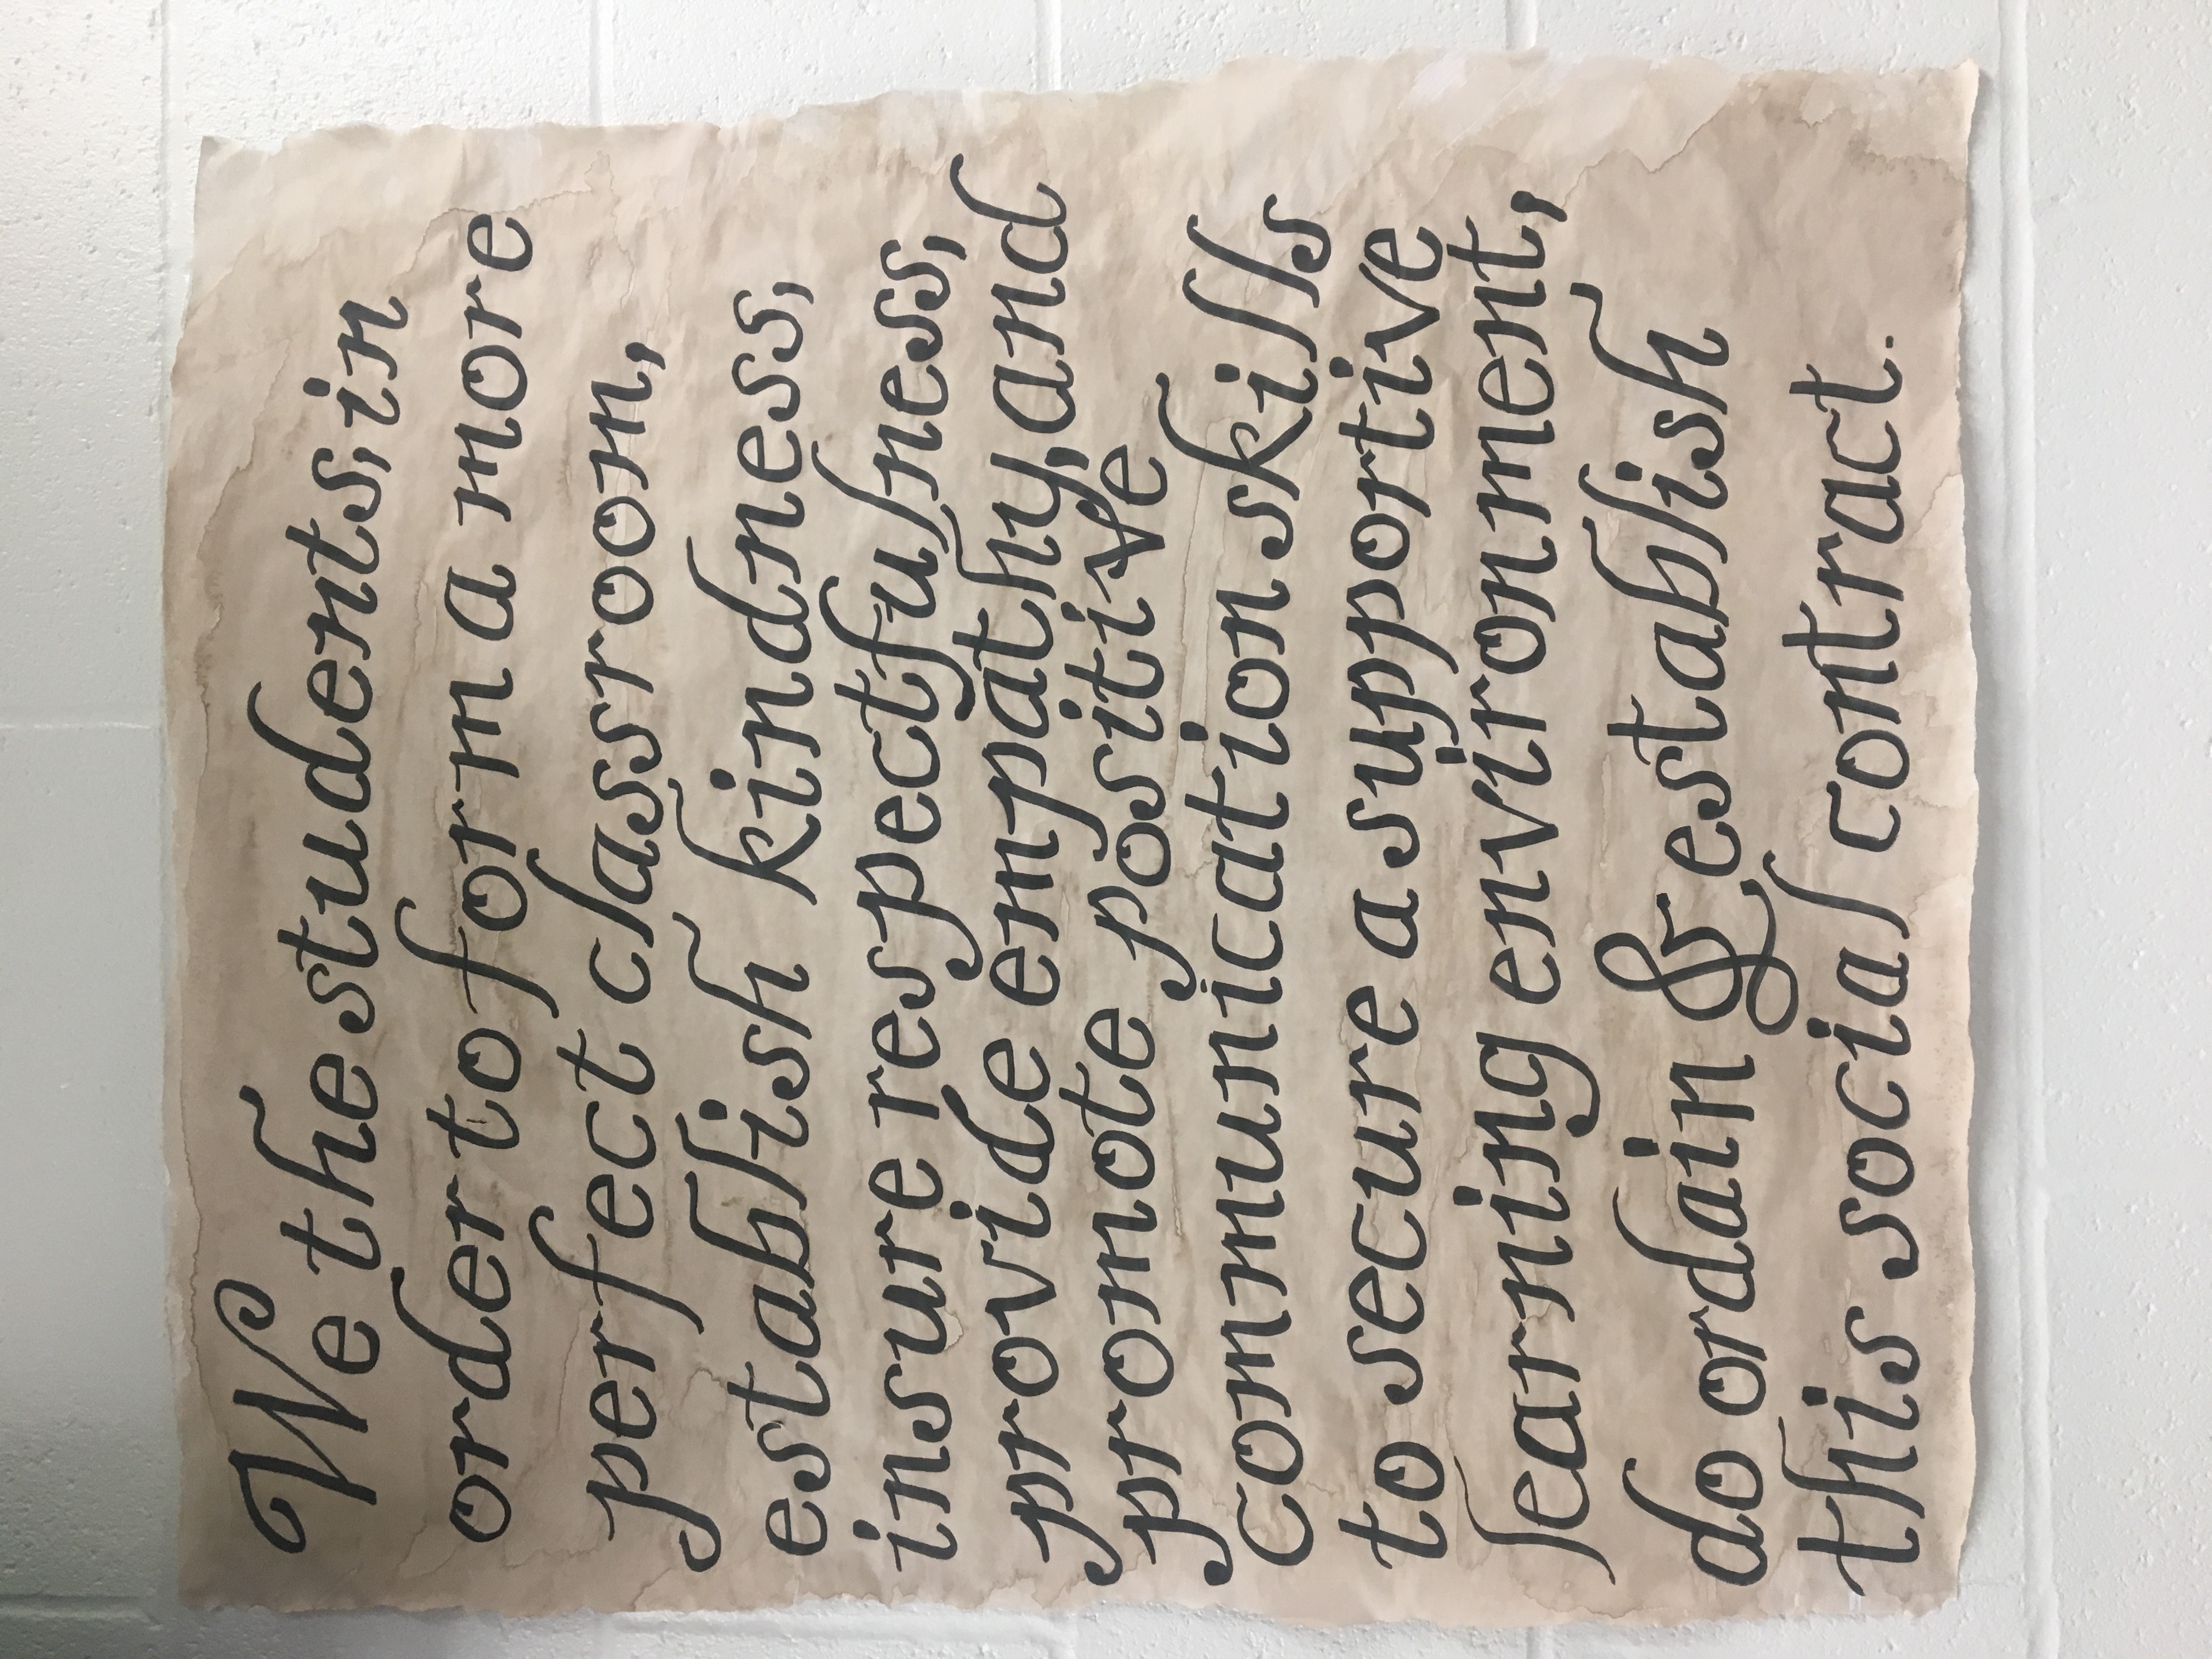 We the students, in
order to form a more
perfect classroom,
establish kindness,
insure respectfulness,
provide empathy, and
promote positive
communication skills
to secure a supportive
learning environment,
do ordain & establish
this social contract.